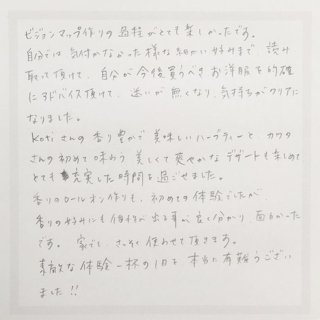 ビジョンマップ作りの過程がとても楽しかったです。
自分では気付かなかった様な細かい好みまで読み
取って頂けて、自分が今後買うべきお洋服を的確
にアドバイス頂けて、迷いが無くなり、気持ちがクリアに
なりました。
さんの香り豊かで美味しいハーブティーと
さんの初めて味わう美しくて爽やかなデザートも楽しめて
とても充実した時間を過ごせました。
香りのロールオン作りも、初めての体験でしたが、
香りの好みにも個性が出る事が良く分かり、面白かった
です。家でも、さっそく使わせて頂きます。
素敵な体験一杯の1日を本当に有難うござい
ました!!